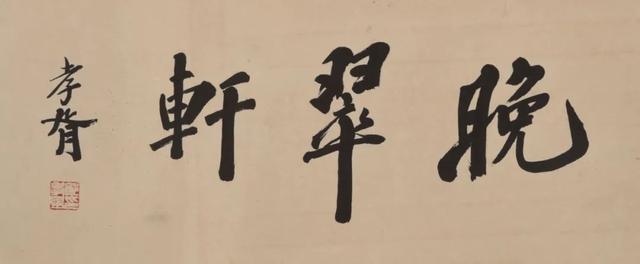 晚翠軒
孝胥